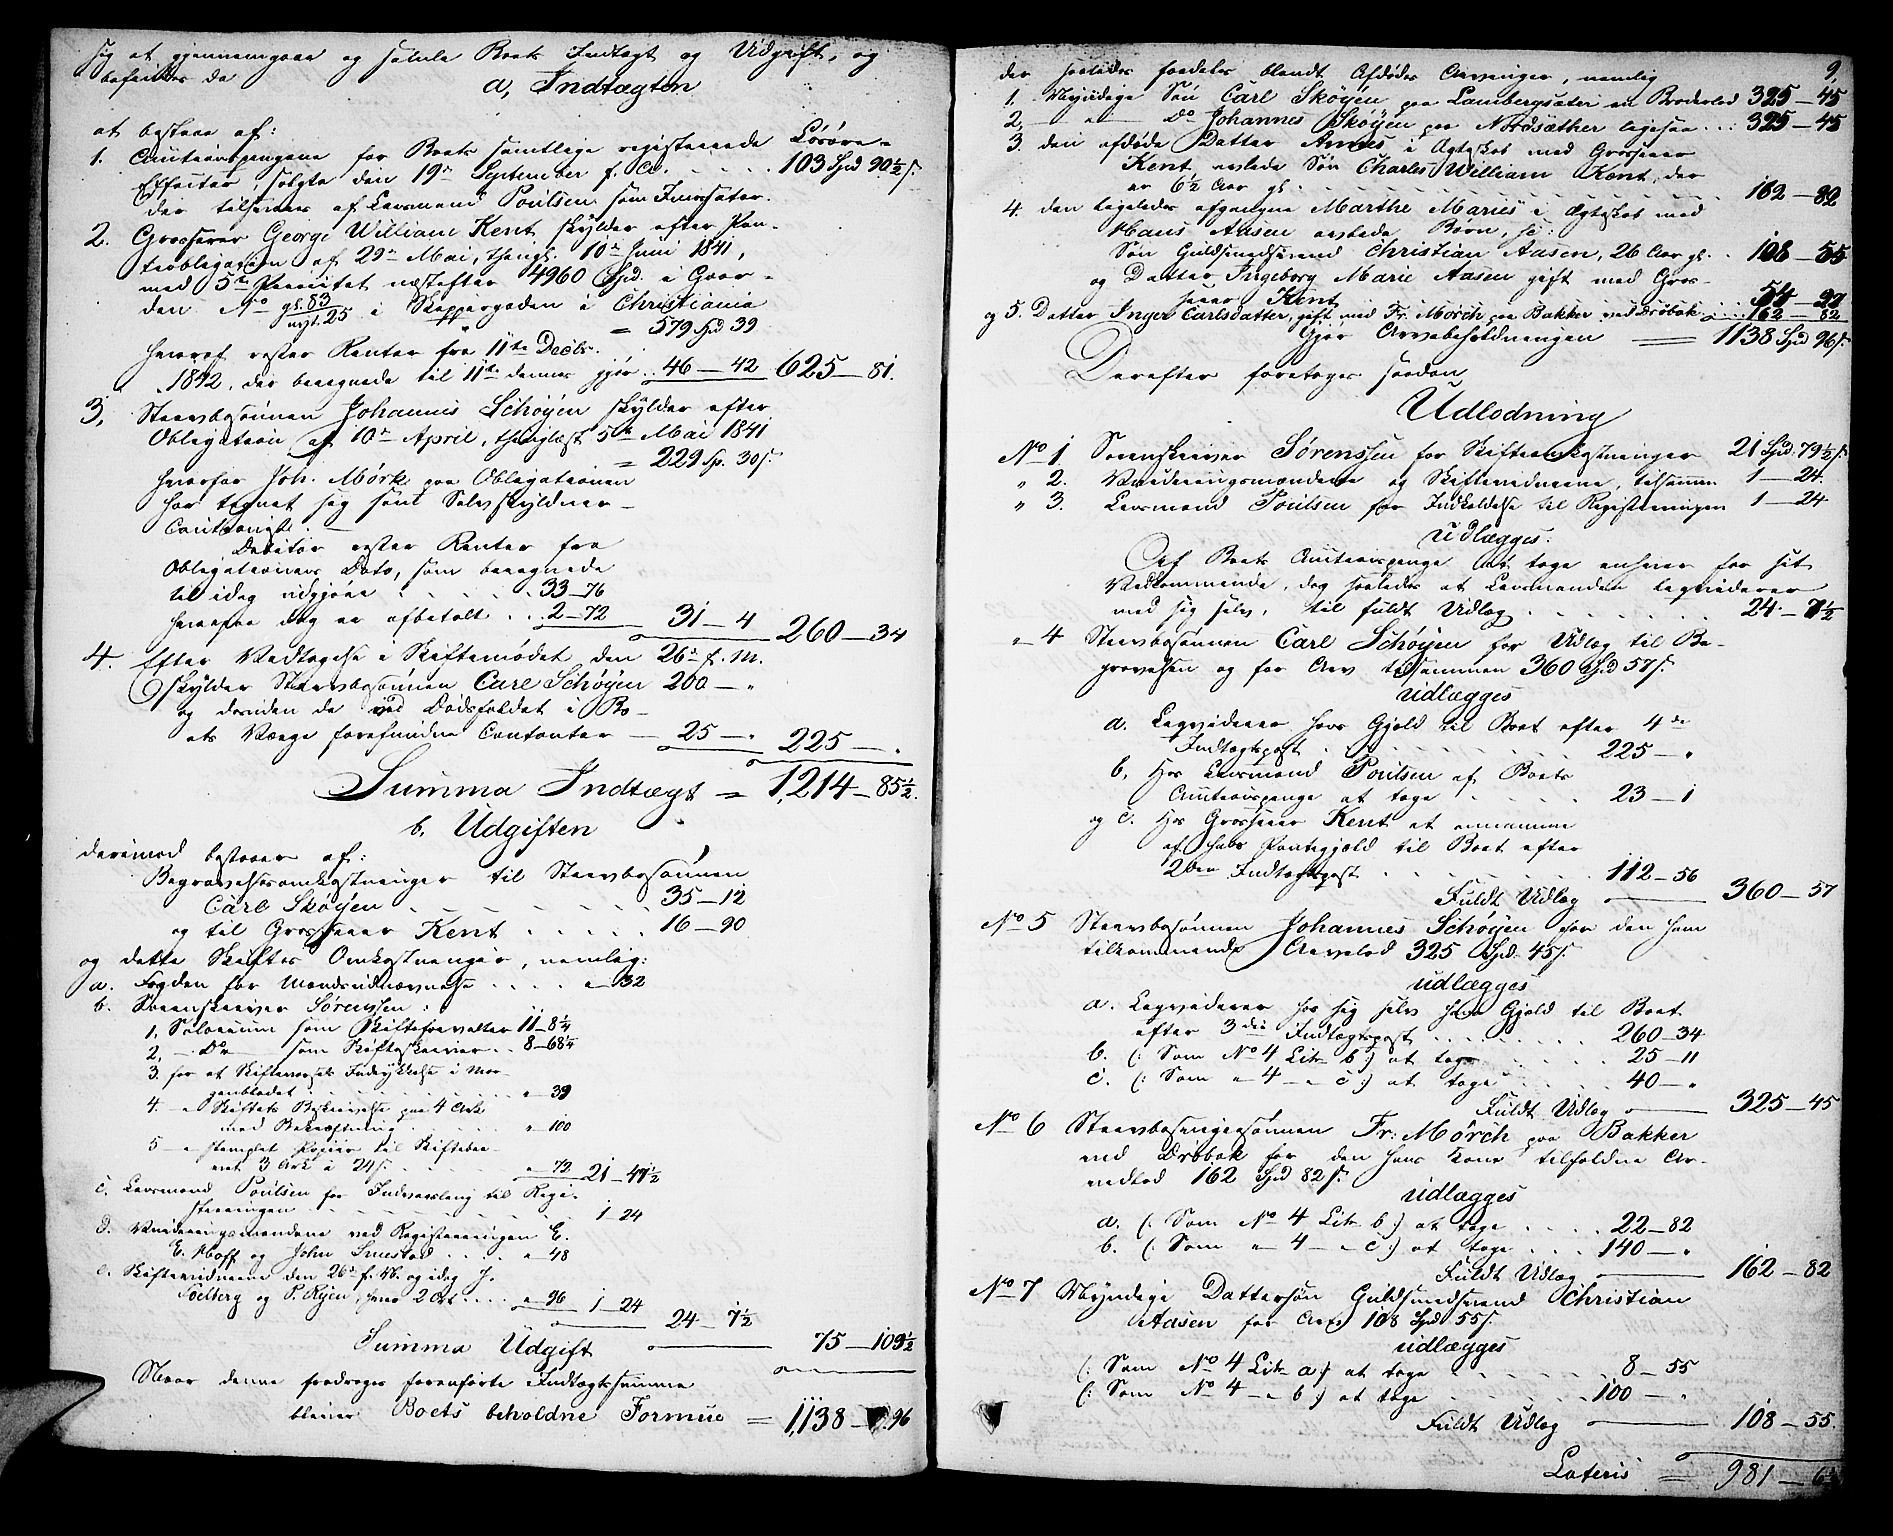 sig at gjennemgaae og samle Boets Indtægt og Udgift, og
befandtes da
a, Indtægten
at bestaae af:
1. Auctionspengene for Boets samtlige registrerede Løsøre-
Effecter, solgte den 19de September f. A. . . . . 103 Spd 90½ s.
der tilsvares af Lensmand Poulsen som Incassator.
2. Grosserer George William Kent skylder efter Pan-
teobligation af 29de Mai, thingl. 10de Juni 1841,
med 5te Prioritet næstefter 4960 Spd. i Gaar-
den No gl. 83 nyt. 25 i Skippergaden i Christiania
= 579 Spd 39
hvoraf rester Renter fra 11te Decbr.
1842, der beregnede til 11te dennes gjør . . 46 — 42 625 — 81.
3, Stervbosønnen Johannes Schøyen skylder efter
Obligation af 10de April, thinglæst 5te Mai 1841
= 229 Sp. 30 s.
hvorfor Joh. Mørk paa Obligationen
har tegnet sig som Selvskyldner-
Cautionist. —
Debitor rester Renter fra
Obligationens Dato, som beregnede
til idag udgjøre . . . . . 33 — 76
hvorpaa dog er afbetalt . . . 2 — 72 31 — 4 260 — 34
4. Efter Vedtagelse i Skiftemødet den 26de f. M.
skylder Stervbosønnen Carl Schøyen 200 — "
og desuden de ved Dødsfaldet i Bo-
ets Værge forefundne Contanter — 25 — " 225 — "
Summa Indtægt = 1,214 — 85½.
b. Udgiften
derimod bestaaer af:
Begravelsesomkostninger til Stervbosønnen
Carl Skøyen . . . . . . . 35 — 12
og til Grosserer Kent . . . . . 16 — 90
og dette Skiftes Omkostninger, nemlig:
a. Fogden for Mandsudnævnelse . . . . " — 32
b. Sorenskriver Sørenssen:
1, Salarium som Skifteforvalter 11 — 8¼
2, — Do — som Skifteskriver . . 8 — 68¼
3. for at Skiftevarsel Indrykkelse i Mor-
genbladet . . . . . . . " — 39
4. — " Skiftets Beskrivelse paa 4 Ark
med Bekræftning . . . . . " — 100
5 — " stemplet Papiir til Skiftebre-
vet 3 Ark à 24 s. . . . . " — 72 21 — 47½
c. Lensmand Poulsen for Indvarsling til Regi-
streringen . . . . . . . . . . 1 — 24
d. Vurderingsmændene ved Registreringen E.
E. Hoff og John Smestad . . . . " — 48
e. Skiftevidnerne den 26de f. M. og idag H.
Solberg og P. Ryen, hver 2 Ort . . . . " — 96 1 — 24
24 — 7½
Summa Udgift — 75 — 109½
Naar denne fradrages foranførte Indtægtssumma
bliver Boets beholdne Formue = 1,138 — 96
9,
der saaledes fordeles blandt Afdødes Arvinger, nemlig
1. Myndige Søn Carl Skøyen paa Lambergsæter en Broderlod 325 — 45
2, — " — Do Johannes Skøyen paa Nordsæther ligesaa . . : 325 — 45
3. den afdøde Datter Annes i Ægteskab med Grosserer
Kent avlede Søn Charles William Kent, der
er 6½ Aar gl. . . . . . . . . . . 162 — 82
4. den ligeledes afgangne Marthe Maries i Ægteskab med
Hans Aasen avlede Børn, so:
Søn Guldsmedsvend Christian Aasen, 26 Aar gl. . 108 — 55
og Datter Ingeborg Marie Aasen gift med Gros-
serer Kent . . . 54 — 27
og 5. Datter Inger Carlsdatter, gift med Fr. Mørch paa Bakker ved Drøbak . . . 162 — 82
Gjør Arvebeholdningen = 1138 Spd 96 s.
Derefter foretoges saadan
Udlodning
No 1 Sorenskriver Sørenssen for Skifteomkostninger 21 Spd. 79½ s.
" 2. Vurderingsmændene og Skiftevidnerne, tilsammen 1 — 24.
" 3. Lensmand Poulsen for Indkaldelse til Registreringen 1 — 24
udlægges:
Af Boets Auctionspenge at tage enhver for sit
Vedkommende, dog saaledes at Lensmanden liqviderer
med sig selv, til fuldt Udlæg . . . . . . . 24 — 7½
" 4 Stervbosønnen Carl Schøyen for Udlæg til Be-
gravelsen og for Arv tilsammen 360 Spd 57 s.
udlægges
a. Liqviderer hans Gjæld til Boet efter 4de
Indtægtspost . . . . . . . . . 225 — "
b. Hos Lensmand Poulsen af Boets
Auctionspenge at tage . . . . . 23 — 1
og c. Hos Grosserer Kent at annamme
af hans Pantegjæld til Boet efter
2den Indtægtspost . . . . . . . 112 — 56
Fuldt Udlæg — 360 — 57
No 5 Stervbosønnen Johannes Schøyen for den ham
tilkommende Arvelod 325 Spd. 45 s.
udlægges
a. Liqviderer hos sig selv hans Gjæld til Boet
efter 3die Indtægtspost . . . . . . . . . 260 — 34
b. (: Som No 4 Litr b:) at tage . . . . . 25 — 11
c. (: Som " 4 — " c:) at tage . . . . . 40 — "
Fuldt Udlæg — 325 — 45
No 6 Stervbosvigersønnen Fr: Mørch paa Bakker
ved Drøbak for den hans Kone tilfaldne Ar-
velod 162 Spd 82 s.
udlægges
a. (: Som No 4 Litr b:) at tage . . . . 22 — 82
b. (: Som " 4 — " c:) at tage . . . 140 — "
Fuldt Udlæg — 162 — 82
No 7 Myndige Dattersøn Guldsmedsvend Christian
Aasen for Arv 108 Spd 55 s.
udlægges
(: Som No 4 Litr a:) at tage . . . . . . 8 — 55
(: Som No 4 — " b:) at tage . . . . . . 100 — "
Fuldt Udlæg — 108 — 55.
Lateris = 981 — 6½